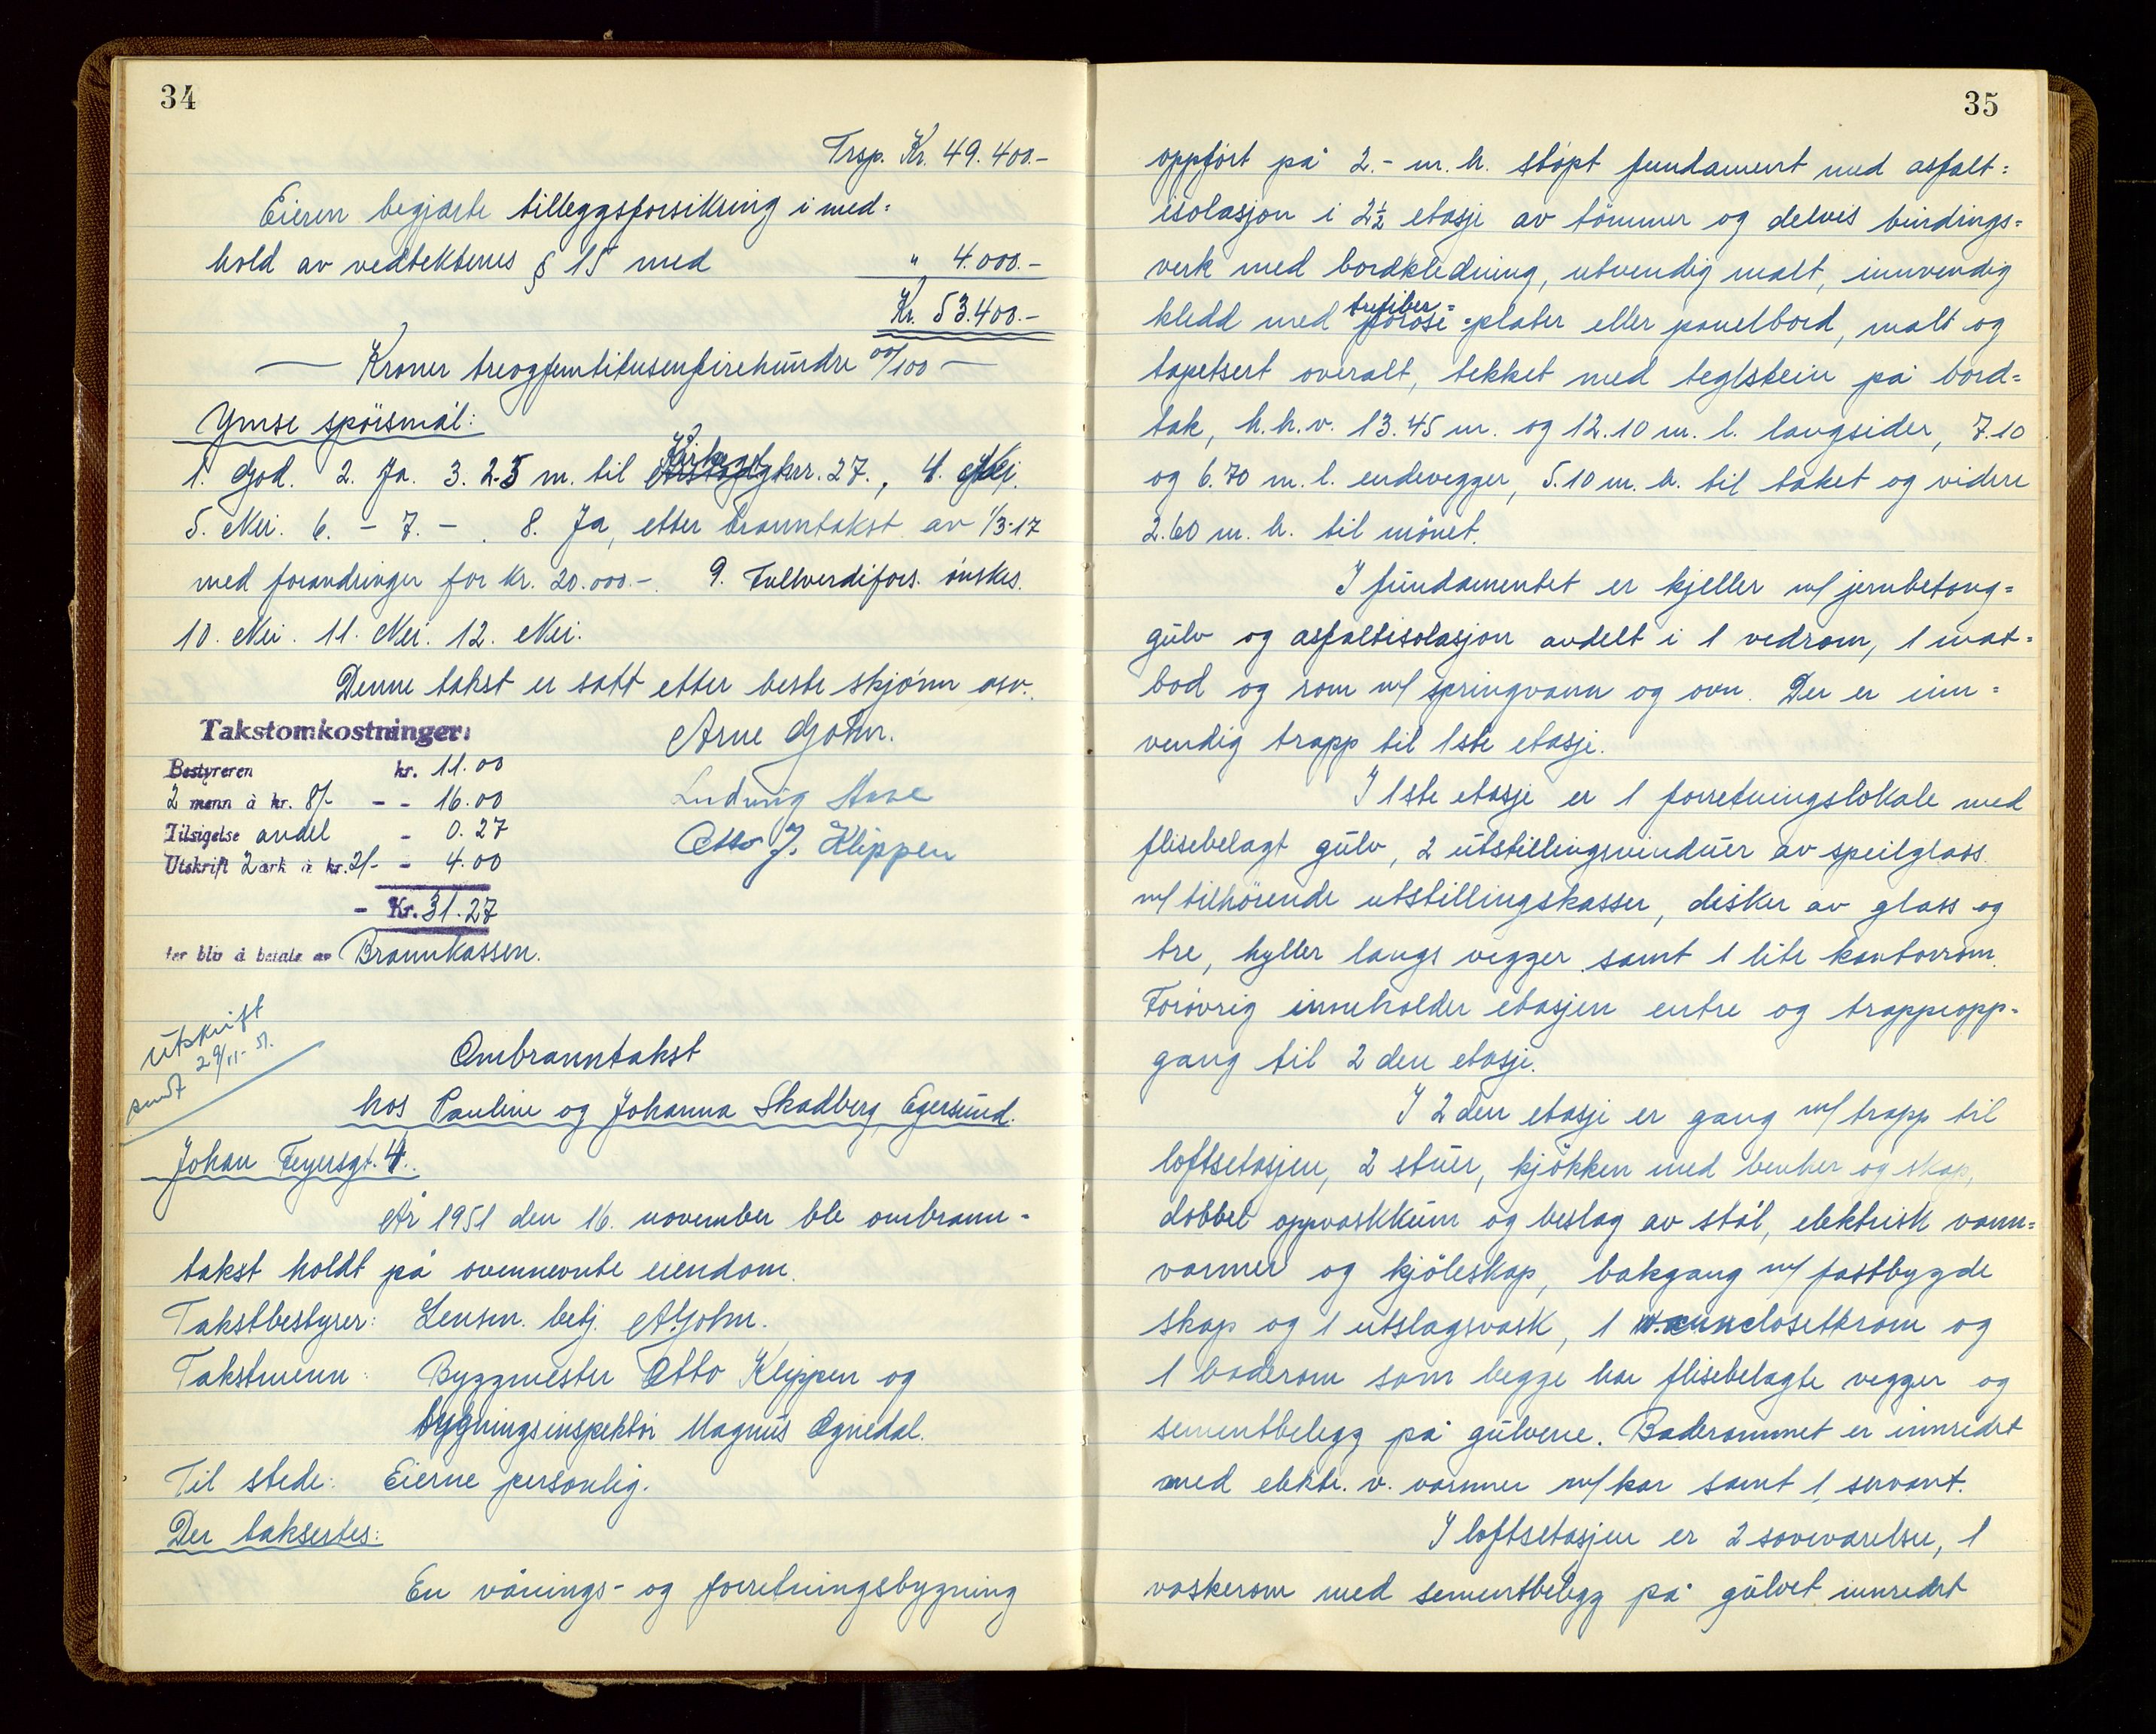 34
Trsp. Kr. 49.400.-
Eieren begjærte tilleggsforsikring i med=
hold av vedtektenes § 15 med " 4.000.-
Kr. 53.400.-
— Kroner treogfemtitusenfirehundre 00/100 —
Ymse spörsmål:
1. God. 2. Ja. 3. 2.5 m. til nr. 27., 4. Nei.
5. Nei. 6. - 7. - . 8. Ja, etter branntakst av 1/3-17
med forandringer for kr. 20.000.- 9. Fullverdifors. önskes.
10. Nei. 11. Nei. 12. Nei.
Denne takst er satt etter beste skjönn osv.
Takstomkostninger:
Arne Gohn.
Bestyreren kr. 11.00
Ludvig Aase
2 menn à kr. 8/- - - 16.00
Otto J. Klippen
Tilsigelse andel - 0.27
Utskrift 2 ark à kr. 2/- - 4.00
- Kr. 31.27
ter bliv å betale av Brannkassen.
Utskrift
sendt 29/11-51.
Ombranntakst
hos Pauline og Johanna Skadberg, Egersund.
Johan Feyersgt. 4.
År 1951 den 16. november ble ombrann-
takst holdt på ovennevnte eiendom.
Takstbestyrer: Lensm. betj. A. Gohn.
Takstmenn: Byggmester Otto Klippen og
bygningsinspektör Magnus Ognedal.
Til stede: Eierne personlig.
Der taksertes:
En vånings- og forretningsbygning
35
oppfört på 2.- m. h. stöpt fundament med asfalt=
isolasjon i 2½ etasje av tömmer og delvis bindings=
verk med bordkledning, utvendig malt, innvendig
trefiber=
kledd med poröse =plater eller panelbord, malt og
tapetsert overalt, tekket med teglstein på bord=
tak, h.h.v. 13.45 m. og 12.10 m. l. langsider, 7.10
og 6.70 m. l. endevegger, 5.10 m. h. til taket og videre
2.60 m. h. til mönet.
I fundamentet er kjeller m/ jernbetong=
gulv og asfaltisolasjon avdelt i 1 vedrom, 1 mat=
bod og rom m/ springvann og ovn. Der er inn=
vendig trapp til 1ste etasje.
I 1ste etasje er 1 forretningslokale med
flisebelagt gulv, 2 utstillingsvinduer av speilglass
m/ tilhörende utstillingskasser, disker av glass og
tre, hyller langs vegger samt 1 lite kontorrom.
Forövrig inneholder etasjen entre og trappeopp-
gang til 2den etasje.
I 2den etasje er gang m/ trapp til
loftsetasjen, 2 stuer, kjökken med benker og skap,
dobbel oppvaskkum og beslag av stål, elektrisk vann=
varmer og kjöleskap, bakgang m/ fastbygde
skap og 1 utslagsvask, 1 w.c. rom og
1 baderom som begge har flisebelagte vegger og
sementbelegg på gulvene. Baderommet er innredet
med elektr. v. varmer m/ kar samt 1 servant.
I loftsetasjen er 2 soveværelser, 1
vaskerom med sementbelegg på gulvet innredet